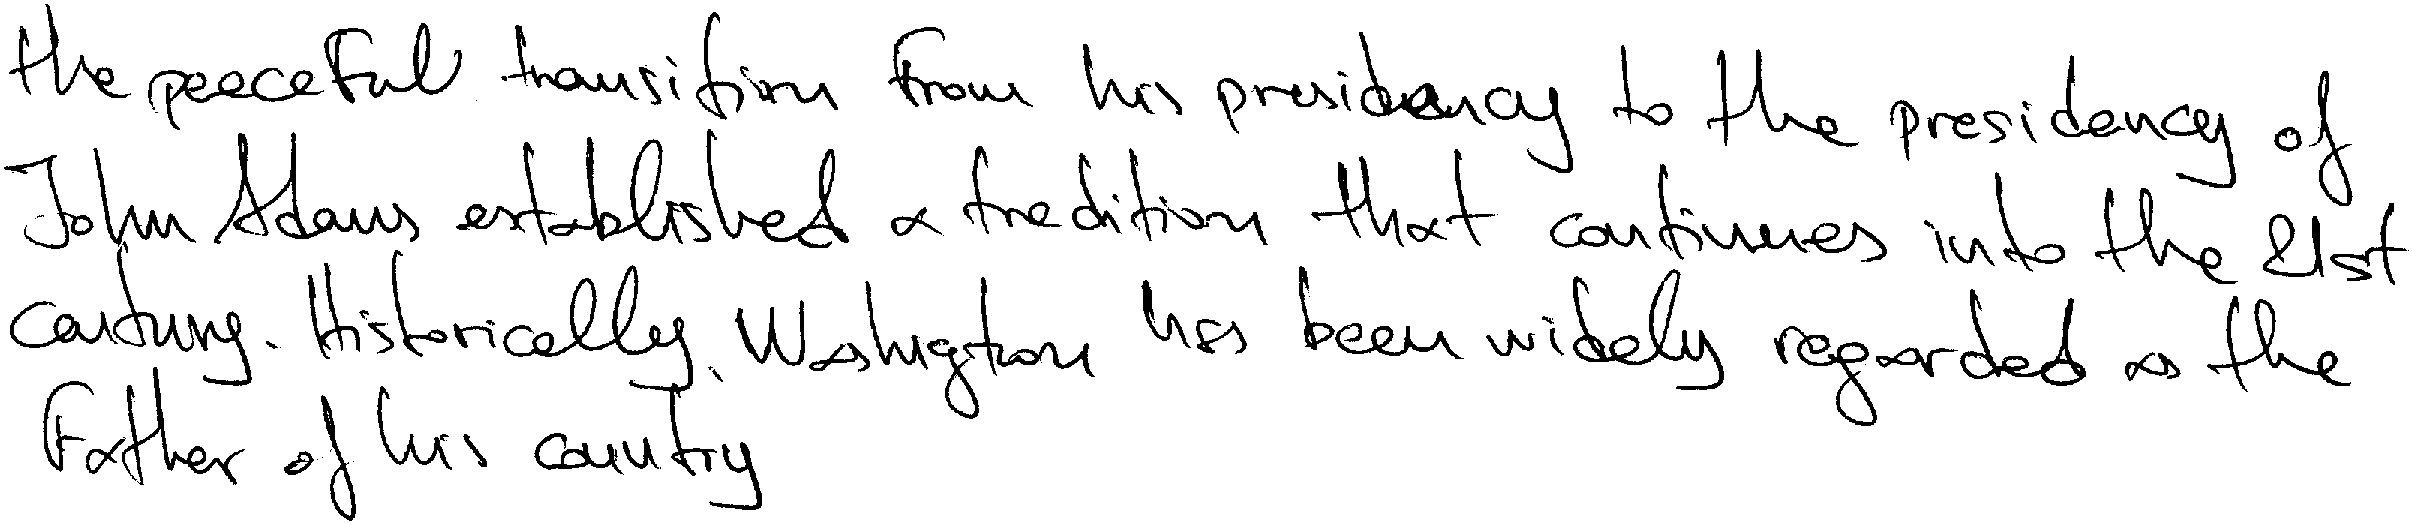 the peaceful transition from his presidency to the presidency of
John Adams established a tradition that continues into the 21st
century. Historically, Washington has been widely regarded as the
Father of his country